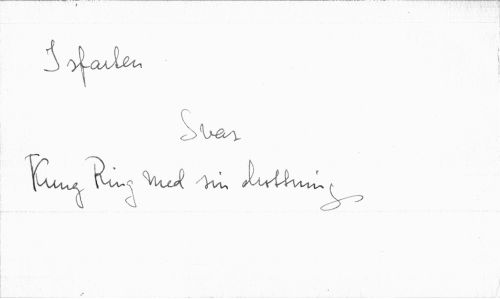 Isfarten
Svar
Kung Ring med sin drottning